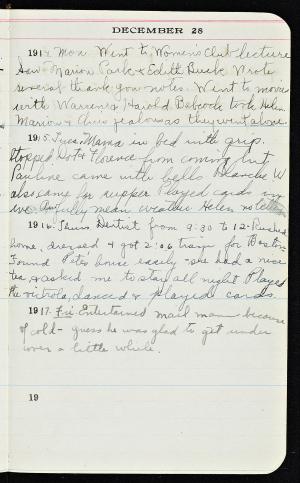 DECEMBER 28
1914 Mon. Went to Women's Club - lecture
Saw Marion Park & Edith Buck. Wrote
several thank you notes. Went to movies
with Warreners. Harold Babcock took Helen
Marion & Chris jealous as they went alone.
1915. Tues. Mama in bed with grip.
Stopped Dot & Florence from coming but
Pauline came with bells Blanche W
also came for supper Played cards in
eve Awfully mean weather Helen no
1916. Thurs Dentist from 9:30 to 12 - Rushed
home, dressed & got 2:06 train for Boston
Found Pete's house easily - she had a nice
tea & asked me to stay all night Played
the victrola, danced & played cards.
1917. Fri Entertained mail man because
of cold - guess he was glad to get under
cover a little while.
19